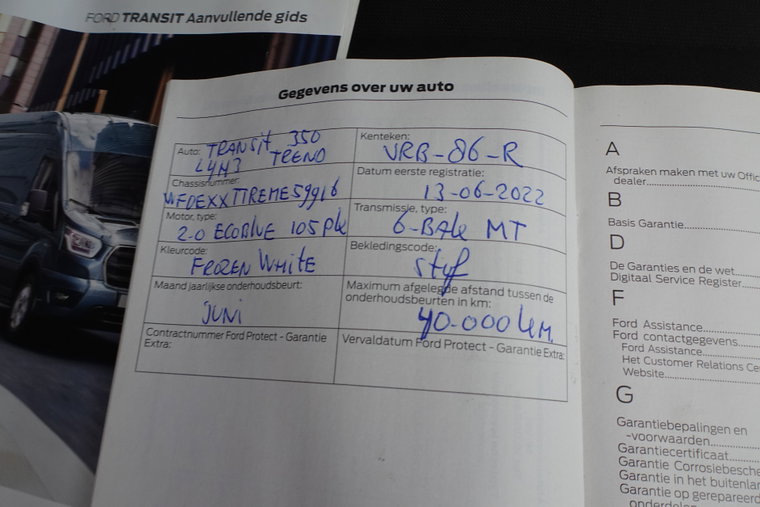 FORD TRANSIT Aanvullende gids
Gegevens over uw auto
Auto: TRANSIT 350
L4H3 TREND
Kenteken:
VRB-86-R
Chassisnummer:
Datum eerste registratie:
13-06-2022
Motor, type:
2.0 ECOBLUE 105 PK
Transmissie, type:
6-BAK MT
Kleurcode:
FROZEN WHITE
Bekledingscode:
Stof
Maand jaarlijkse onderhoudsbeurt:
JUNI
Maximum afgelegde afstand tussen de
onderhoudsbeurten in km:
40.000 km.
Contractnummer Ford Protect - Garantie
Extra:
Vervaldatum Ford Protect - Garantie Extra:
A
Afspraken maken met uw
dealer
B
Basis Garantie
D
De Garanties en de wet
Digitaal Service Register
F
Ford Assistance
Ford contactgegevens
Ford Assistance
Het Customer Relations
Website
G
Garantiebepalingen en
-voorwaarden
Garantiecertificaat
Garantie
Garantie in het
Garantie op